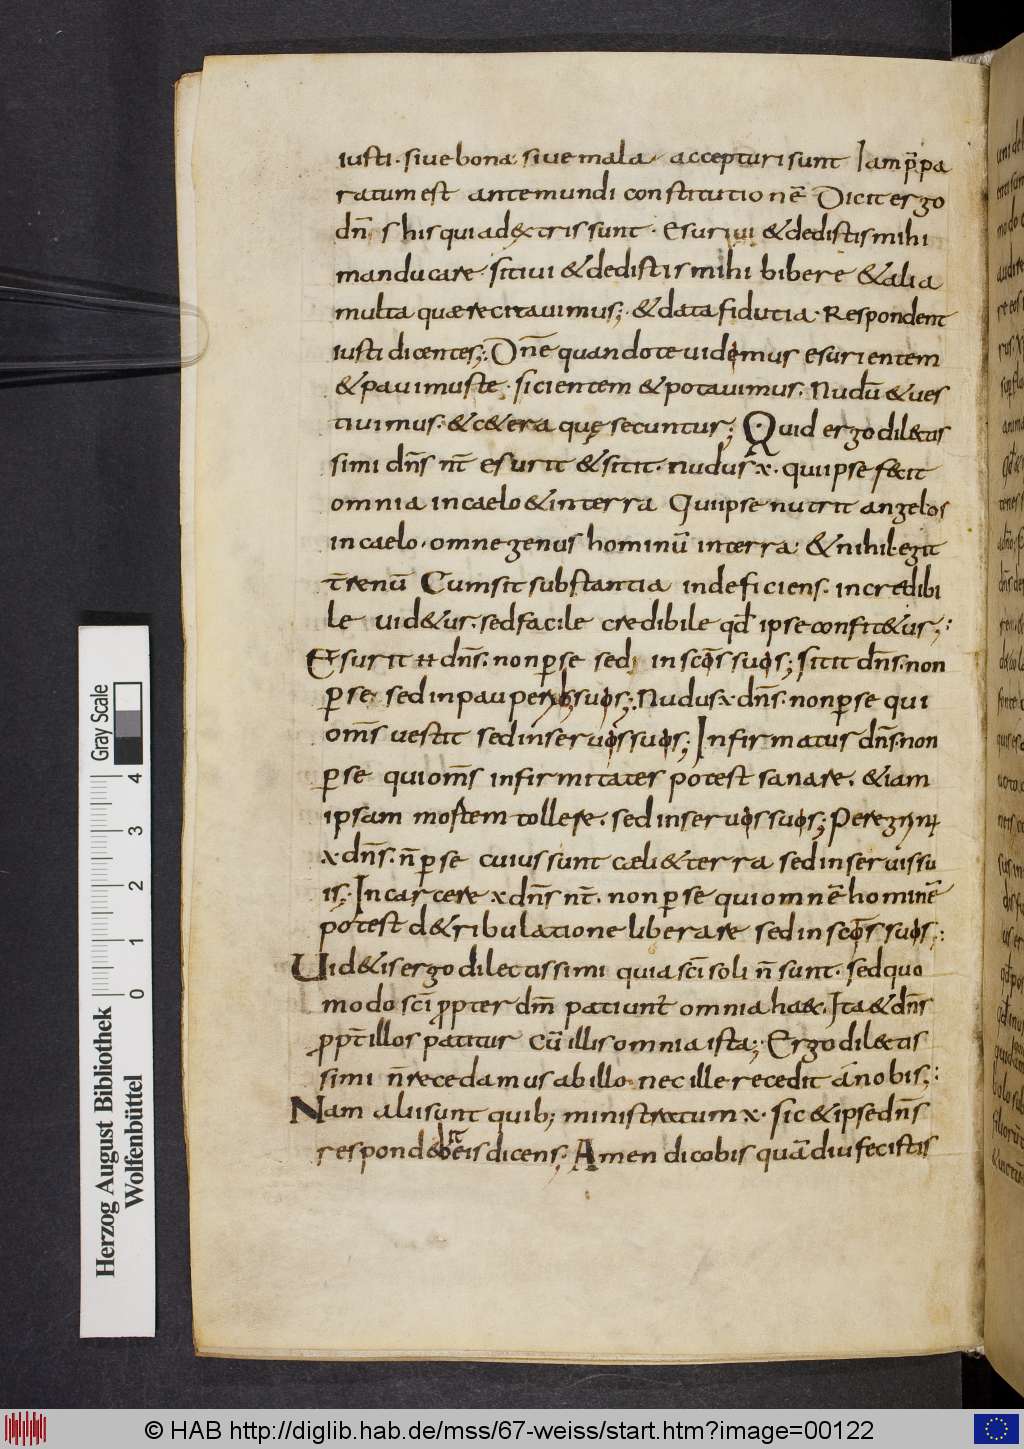 iusti· siue bona siue mala· accepturi sunt Iam p̄pa
ratum est ante mundi constitutionē Dicit ergo
dn̄s his qui ad extris sunt· Esuriui & dedistis mihi
manducare· sitiui & dedistis mihi bibere & alia
multa quae recitauimus; & data fidutia· Respondent
iusti dicentes; Dn̄e quando te uidimus esurientem
& pauimus te· sicientem & potauimus· Nudū & ues
tiuimus· & c&era quę secuntur; Quid ergo dil&tis
simi dn̄s nr̄ esurit & sitit· nudus x· qui ipse fecit
omnia in caelo & in terra Qui ipse nutrit angelos
in caelo· omne genus hominū in terra· & nihil eget
t̄renū Cum sit substantia indeficiens· incredibi
le uid&ur· sed facile credibile qd̄ ipse confit&ur;
Esurit dn̄s· non p̱ se sed in sc̄os suos; sitit dn̄s· non
p̱ se· sed in pauperibus suos; Nudus x dn̄s· non p̱ se qui
om̄s uestit sed in seruos suos; Infirmatus dn̄s· non
p̱ se qui om̄s infirmitates potest sanare· & iam
ipsam mortem tollere· sed in seruos suos; Peregrin
x dn̄s· n̄ p̱ se cuius sunt caeli & terra sed in seruis su
is; In carcere x dn̄s nr̄· non p̱ se qui omnē hominē
potest d& ribulatione liberare sed in sc̄os suos;
Uid&is ergo dilectissimi quia sc̄i soli n̄ sunt· sed quo
modo sc̄i propter dm̄ patiunt̄ omnia haec· Ita & dn̄s
ppt̄ illos patitur cū illis omnia ista; Ergo dil&tis
simi n̄ recedamus ab illo nec ille recedit a nobis;
Nam alii sunt quib; ministratum x· sic & ipse dn̄s
respond&bit eis dicens; Amen dico uobis quādiu fecistis
Herzog August Bibliothek
Wolfenbüttel
0 1 2 3 4
Gray Scale
© HAB http://diglib.hab.de/mss/67-weiss/start.htm?image=00122